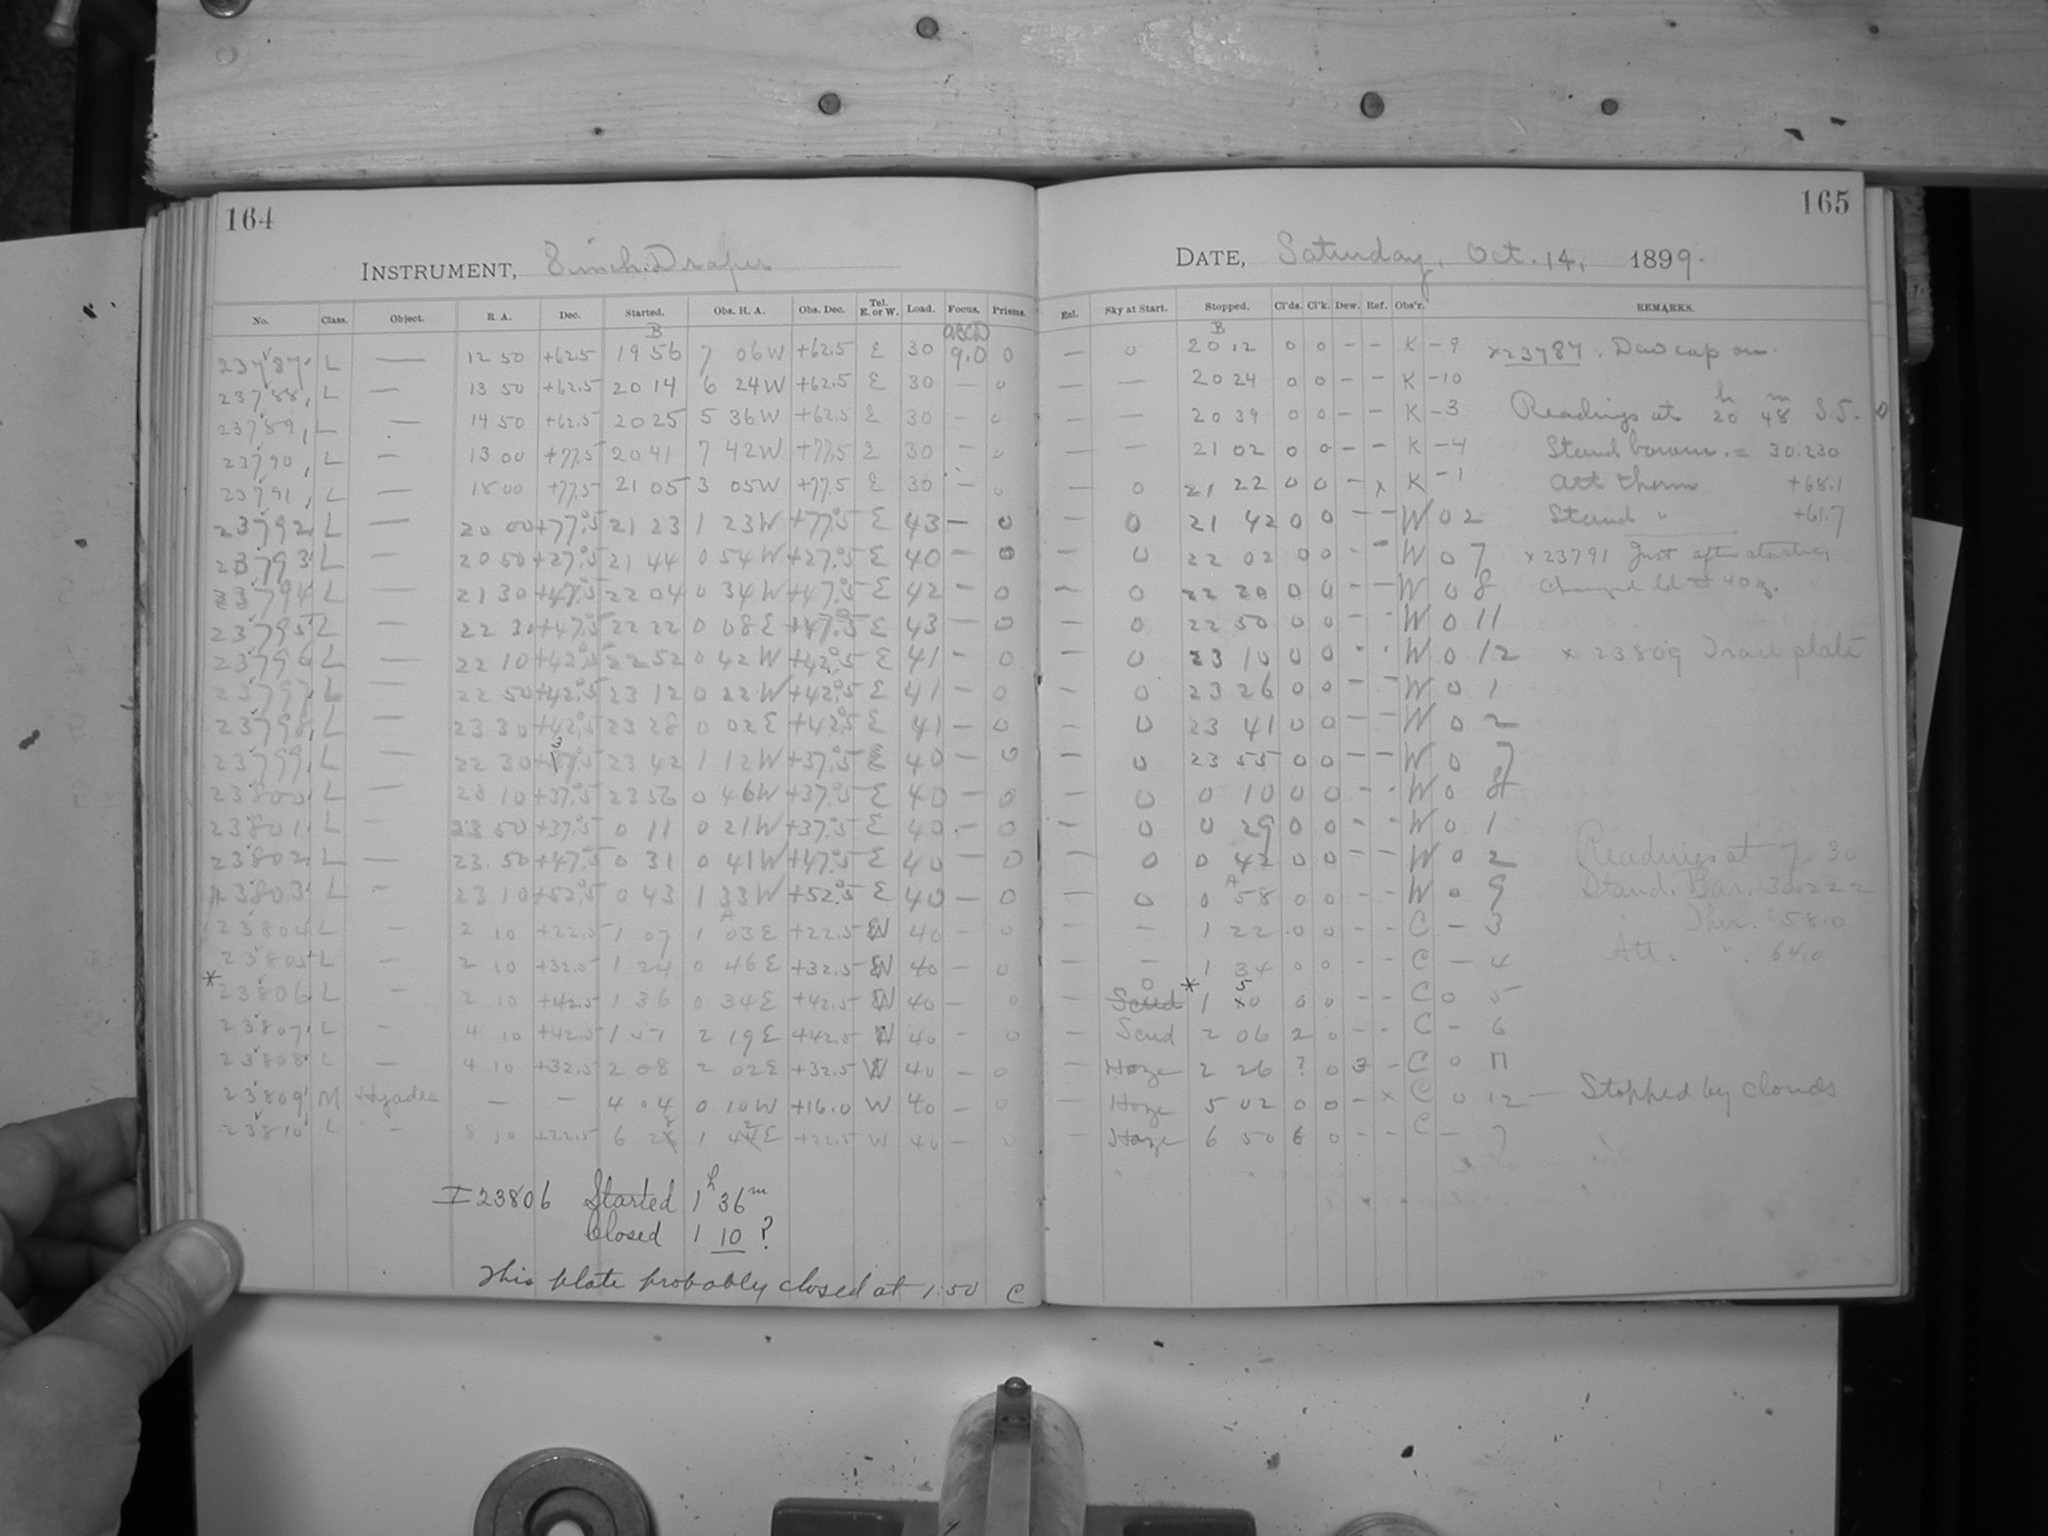 164
INSTRUMENT, 8 inch Draper
No. Class. Object. R A. Dec. Started. Obs. H. A. Obs. Dec. Tel. E. or W. Load. Focus. Prisms.
B ABCD
23787 L — 12 50 +62.5 19 56 7 06W +62.5 E 30 9.0 0
23788 L — 13 50 +62.5 20 14 6 24W +62.5 E 30 — 0
23789 L — 14 50 +62.5 20 25 5 36W +62.5 E 30 — 0
23790 L — 13 00 +77.5 20 41 7 42W +77.5 E 30 — 0
23791 L — 18 00 +77.5 21 05 3 05W +77.5 E 30 — 0
23792 L — 20 00 +77.5 21 23 1 23W +77.5 E 43 — 0
23793 L — 20 50 +27.5 21 44 0 54W +27.5 E 40 — 0
23794 L — 21 30 +47.5 22 04 0 34W +47.5 E 42 — 0
23795 L — 22 30 +47.5 22 22 0 08E +47.5 E 43 — 0
23796 L — 22 10 +42.5 22 52 0 42W +42.5 E 41 — 0
23797 L — 22 50 +42.5 23 12 0 22W +42.5 E 41 — 0
23798 L — 23 30 +42.5 23 28 0 02E +42.5 E 41 — 0
23799 L — 22 30 +37.5 23 42 1 12W +37.5 E 40 — 0
23800 L — 23 10 +37.5 23 56 0 46W +37.5 E 40 — 0
23801 L — 23 50 +37.5 0 11 0 21W +37.5 E 40 — 0
23802 L — 23.50 +47.5 0 31 0 41W +47.5 E 40 — 0
23803 L — 23 10 +52.5 0 43 1 33W +52.5 E 40 — 0
23804 L — 2 10 +22.5 1 07 1 03E +22.5 W 40 — 0
23805 L — 2 10 +32.5 1 24 0 46E +32.5 W 40 — 0
* 23806 L — 2 10 +42.5 1 36 0 34E +42.5 W 40 — 0
23807 L — 4 10 +42.5 1 51 2 19E +42.5 W 40 — 0
23808 L — 4 10 +32.5 2 08 2 02E +32.5 W 40 — 0
23809 M Hyades — — 4 04 0 10W +16.0 W 40 — 0
23810 L — 8 10 +22.5 6 28 1 42E +22.5 W 40 — 0
I 23806 Started 1h 36m
Closed 1 10 ?
This plate probably closed at 1.50 C
165
DATE, Saturday, Oct. 14, 1899.
Enl. Sky at Start. Stopped. Cl'ds. Cl'k. Dew. Ref. Obs'r. REMARKS.
B
— 0 20 12 0 0 — — K -9 x 23787. Dew cap on.
— — 20 24 0 0 — — K -10
— — 20 39 0 0 — — K -3 Readings at 20h 48m S.T.
— — 21 02 0 0 — — K -4 Stand barom. = 30.230
— 0 21 22 0 0 — x K -1 Att therm +68.1
— 0 21 42 0 0 — — W 0 2 Stand " +61.7
— 0 22 02 0 0 — — W 0 7 x 23791 Just after starting
— 0 22 20 0 0 — — W 0 8 changed ld to 40 g.
— 0 22 50 0 0 — — W 0 11
— 0 23 10 0 0 — — W 0 12 x 23809 Trail plate
— 0 23 26 0 0 — — W 0 1
— 0 23 41 0 0 — — W 0 2
— 0 23 55 0 0 — — W 0 7
— 0 0 10 0 0 — — W 0 8
— 0 0 29 0 0 — — W 0 1
— 0 0 42 0 0 — — W 0 2 Readings at 7 30
— 0 0 58 0 0 — — W 0 9 Stand. Bar. 30.222
— — 1 22 0 0 — — C — 3 Ther. 58.0
— — 1 34 0 0 — — C — 4 Att. " 64.0
— 0 Scud * 1 50 0 0 — — C 0 5
— Scud 2 06 2 0 — — C — 6
— Haze 2 26 ? 0 3 — C 0 11
— Haze 5 02 0 0 — x C 0 12 — Stopped by clouds
— Haze 6 50 6 0 — — C — 7